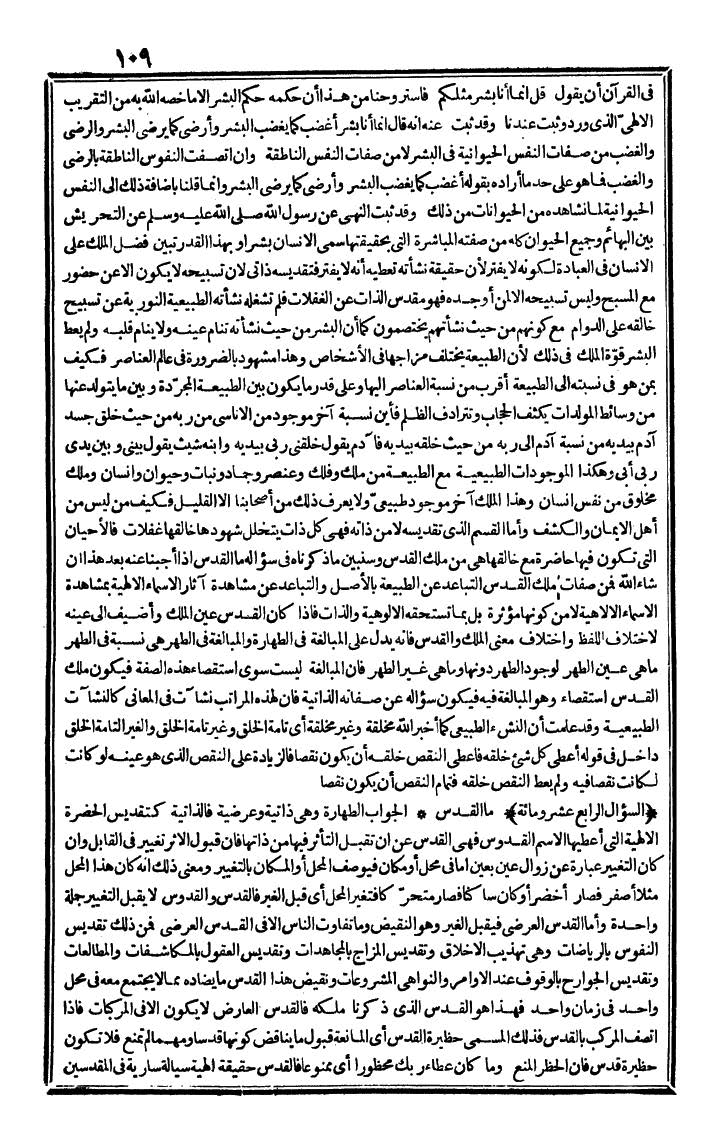 ١٠٩
فى القرآن أن يقول قل انما أنا بشر مثلكم فاستروحنا من هذا أن حكمه حكم البشر الا ما خصه الله به من التقريب
الالهىّ الذى ورد وثبت عندنا وقد ثبت عنه انه قال انما أنا بشر أغضب كما يغضب البشر وأرضى كما يرضى البشر والرضى
والغضب من صفات النفس الحيوانية فى البشر لا من صفات النفس الناطقة وان اتصفت النفوس الناطقة بالرضى
والغضب فما هو على حد ما أراده بقوله أغضب كما يغضب البشر وأرضى كما يرضى البشر وانما قلنا باضافة ذلك الى النفس
الحيوانية لما نشاهده من الحيوانات من ذلك وقد ثبت النهى عن رسول الله صلى الله عليه وسلم عن التحريش
بين البهائم وجميع الحيوان كله من صفته المباشرة التى بحقيقتها سمى الانسان بشرا وبهذا القدر تبين فضل الملك على
الانسان فى العبادة لكونه لا يفتر لأن حقيقة نشأته تعطيه أنه لا يفتر فتقديسه ذاتى لان تسبيحه لا يكون الا عن حضور
مع المسبح وليس تسبيحه الا لمن أوجده فهو مقدس الذات عن الغفلات فلم تشغله نشأته الطبيعية النورية عن تسبيح
خالقه على الدوام مع كونهم من حيث نشأتهم يختصمون كما أن البشر من حيث نشأته تنام عينه ولا ينام قلبه ولم يعط
البشر قوّة الملك فى ذلك لأن الطبيعة يختلف مزاجها فى الأشخاص وهذا مشهود بالضرورة فى عالم العناصر فكيف
بمن هو فى نسبته الى الطبيعة أقرب من نسبة العناصر اليها وعلى قدر ما يكون بين الطبيعة المجرّدة وبين ما يتولد عنها
من وسائط المولدات يكثف الحجاب وتترادف الظلم فأين نسبة آخر موجود من الاناسى من ربه من حيث خلق جسد
آدم بيديه من نسبة آدم الى ربه من حيث خلقه بيديه فا آدم يقول خلقنى ربى بيديه وابنه شيث يقول بينى وبين يدى
ربى أبى وهكذا الموجودات الطبيعية مع الطبيعة من ملك وفلك وعنصر وجماد ونبات وحيوان وانسان وملك
مخلوق من نفس انسان وهذا الملك آخر موجود طبيعىّ ولا يعرف ذلك من أصحابنا الا القليل فكيف من ليس من
أهل الايمان والكشف وأما القسم الذى تقديسه لا من ذاته فهى كل ذات يتخلل شهودها خالقها غفلات فالأحيان
التى تكون فيها حاضرة مع خالقها هى من ملك القدس وسنبين ما ذكرناه فى سؤاله ما القدس اذا أجبنا عنه بعد هذا ان
شاء الله فمن صفات ملك القدس التباعد عن الطبيعة بالأصل والتباعد عن مشاهدة آثار الاسماء الالهية بمشاهدة
الاسماء الالاهية لا من كونها مؤثرة بل بما تستحقه الالوهية والذات فاذا كان القدس عين الملك وأضيف الى عينه
لاختلاف اللفظ واختلاف معنى الملك والقدس فانه يدل على المبالغة فى الطهارة والمبالغة فى الطهر هى نسبة فى الطهر
ما هى عين الطهر لوجود الطهر دونها وما هى غير الطهر فان المبالغة ليست سوى استقصاء هذه الصفة فيكون ملك
القدس استقصاء وهو المبالغة فيه فيكون سؤاله عن صفاته الذاتية فان لهذه المراتب نشآ ت فى المعانى كالنشآ ت
الطبيعية وقد علمت أن النشء الطبيعى كما أخبر الله مخلقة وغير مخلقة أى تامة الخلق وغير تامة الخلق والغير التامة الخلق
داخل فى قوله أعطى كل شئ خلقه فاعطى النقص خلقه أن يكون نقصا فالزيادة على النقص الذى هو عينه لو كانت
لكانت نقصا فيه ولم يعط النقص خلقه فتمام النقص أن يكون نقصا
﴿السؤال الرابع عشر ومائة﴾ ما القدس * الجواب الطهارة وهى ذاتية وعرضية فالذاتية كتقديس الحضرة
الالهية التى أعطيها الاسم القدوس فهى القدس عن ان تقبل التأثر فيها من ذاتها فان قبول الاثر تغيير فى القابل وان
كان التغيير عبارة عن زوال عين بعين اما فى محل أو مكان فيوصف المحل أو المكان بالتغيير ومعنى ذلك انه كان هذا المحل
مثلا أصفر فصار أخضر أو كان ساكنا فصار متحرّكا فتغير المحل أى قبل الغير فالقدس والقدوس لا يقبل التغيير جملة
واحدة وأما القدس العرضى فيقبل الغير وهو النقيض وما تفاوت الناس الا فى القدس العرضى فمن ذلك تقديس
النفوس بالرياضات وهى تهذيب الاخلاق وتقديس المزاج بالمجاهدات وتقديس العقول بالمكاشفات والمطالعات
وتقديس الجوارح بالوقوف عند الاوامر والنواهى المشروعات ونقيض هذا القدس ما يضاده مما لا يجتمع معه فى محل
واحد فى زمان واحد فهذا هو القدس الذى ذكرنا ملكه فالقدس العارض لا يكون الا فى المركبات فاذا
اتصف المركب بالقدس فذلك المسمى حظيرة القدس أى المانعة قبول ما يناقض كونها قدسا ومهما لم تمنع فلا تكون
حظيرة قدس فان الحظر المنع وما كان عطاء ربك محظورا أى ممنوعا فالقدس حقيقة الهية سيالة سارية فى المقدسين